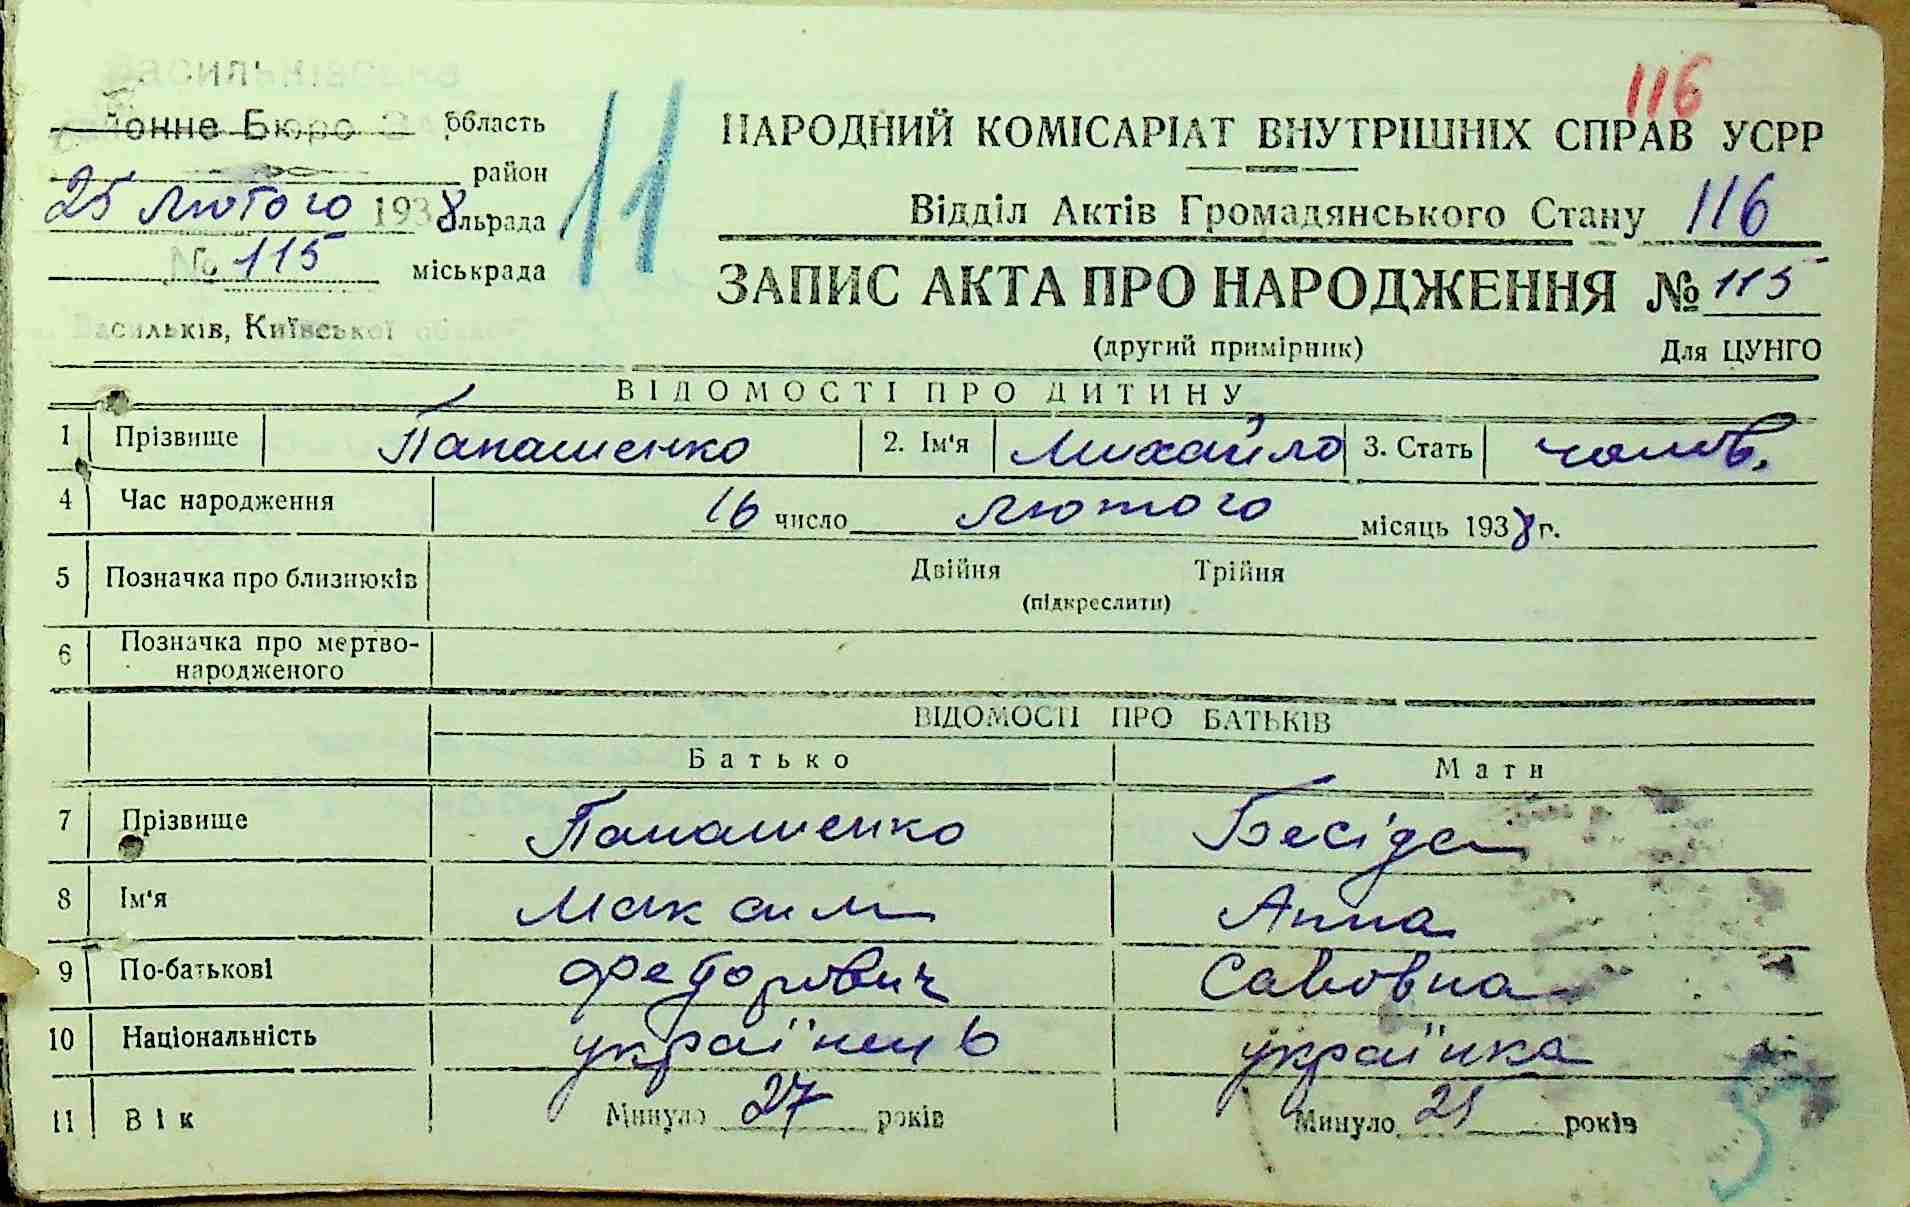 116
Васильківська
йонне Бюро область
район
25 лютого 1938 льрада
№ 115 міськрада
Васильків, Київської област
11
НАРОДНИЙ КОМІСАРІАТ ВНУТРІШНІХ СПРАВ УСРР
Відділ Актів Громадянського Стану 116
ЗАПИС АКТА ПРО НАРОДЖЕННЯ № 115
(другий примірник) Для ЦУНГО
ВІДОМОСТІ ПРО ДИТИНУ
1 Прізвище Папашенко 2. Ім'я Михайло 3. Стать чолов.
4 Час народження 16 число лютого місяць 1938 г.
5 Позначка про близнюків Двійня Трійня
(підкреслити)
6 Позначка про мертво-
народженого
ВІДОМОСТІ ПРО БАТЬКІВ
Батько Мати
7 Прізвище Папашенко Бесіда
8 Ім'я Максим Анна
9 По-батькові Федорович Савовна
10 Національність українець українка
11 Вік Минуло 27 років Минуло років
5